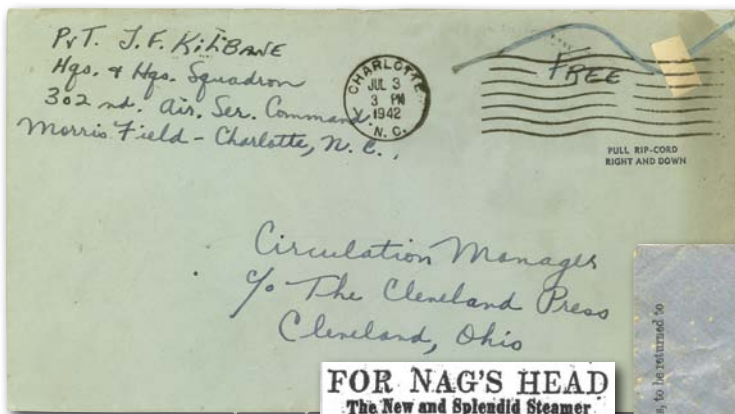 PvT. J.F. KiLBANE
Hqs. & Hqs. Squadron
302 nd. Air. Ser. Command
Morris Field - Charlotte, N. C.,
CHARLOTTE
JUL 3
3 PM
1942
N. C.
FREE
PULL RIP-CORD
RIGHT AND DOWN
Circulation Manager
c/o The Cleveland Press
Cleveland, Ohio
FOR NAG'S HEAD
The New and Splendid Steamer
s, to be returned to